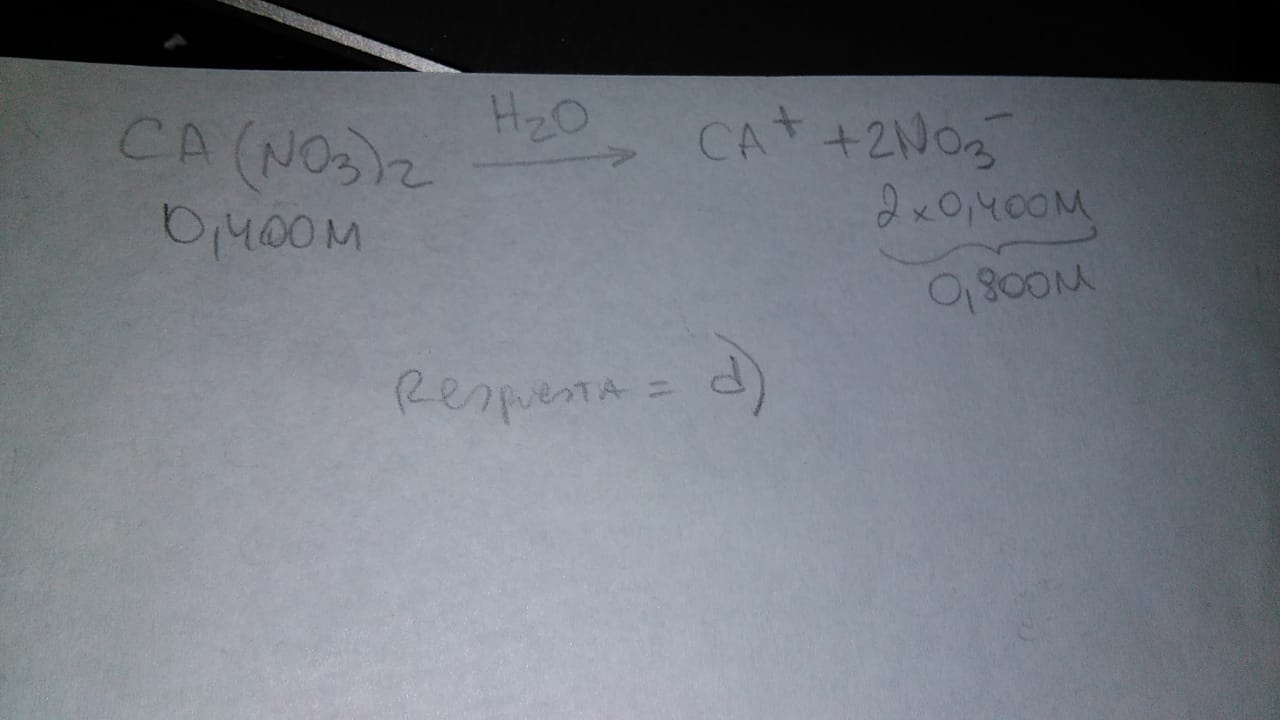 H2O
CA(NO3)2 → CA+ + 2NO3-
0,400M 2x0,400M
0,800M
Respuesta = d)